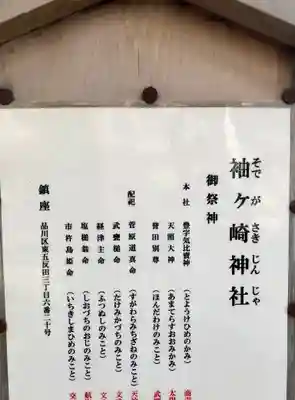 袖ヶ崎神社
そでがさきじんじゃ
御祭神
本社 豊宇気比賣神 (とようけひめのかみ)
天照大神 (あまてらすおおみかみ)
誉田別尊 (ほんだわけのみこと) 武
配祀 菅原道真命 (すがわらみちざねのみこと)
武甕槌命 (たけみかづちのみこと) 文
経津主命 (ふつぬしのみこと) 文
塩槌翁命 (しおづちのおじのみこと)
市杵島姫命 (いちきしまひめのみこと) 交
鎮座 品川区東五反田三丁目六番二十号